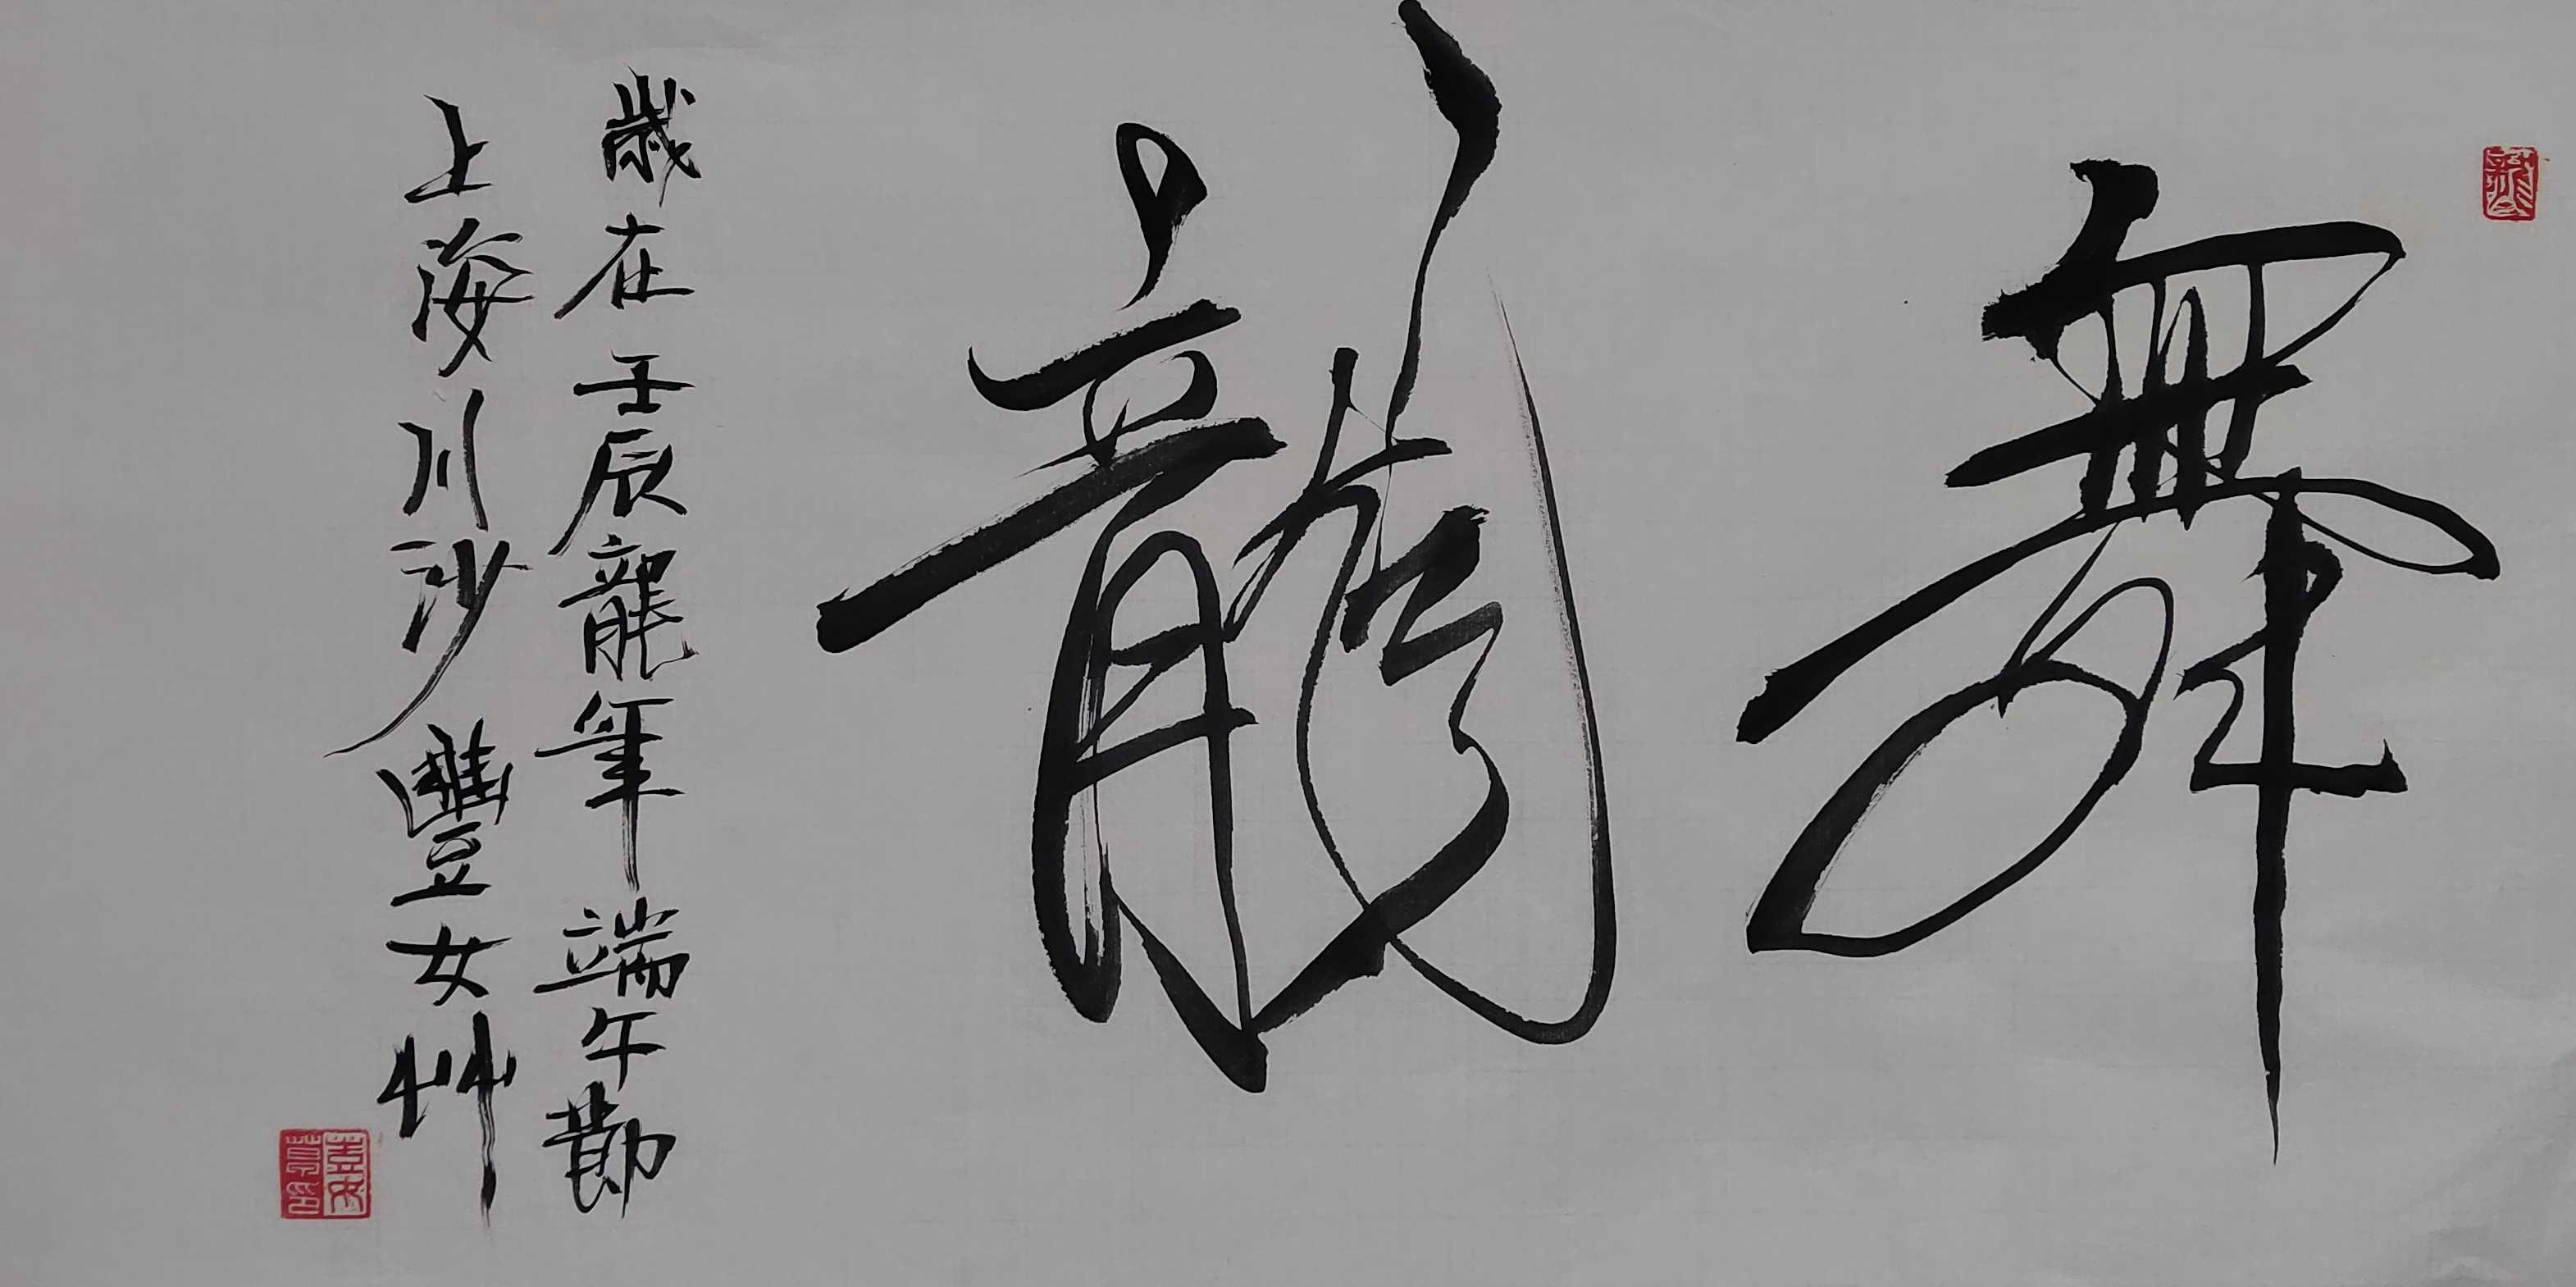 舞龍
歲在壬辰龍年端午勤
上海川沙豐女艸
龍